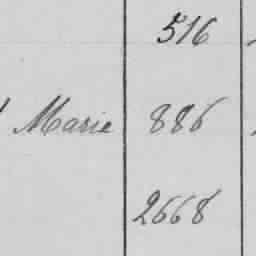 516
Marie 886
2668